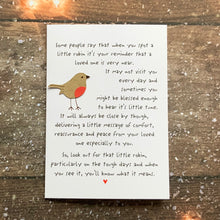 Some people say that when you spot a
little robin it's your reminder that a
loved one is very near.
It may not visit you
every day and
sometimes you
might be blessed enough
to hear it's little tune.
It will always be close by though,
delivering a little message of comfort,
reassurance and peace from your loved
one especially to you.
So, look out for that little robin,
particularly on the tough days and when
you see it, you'll know what it means.